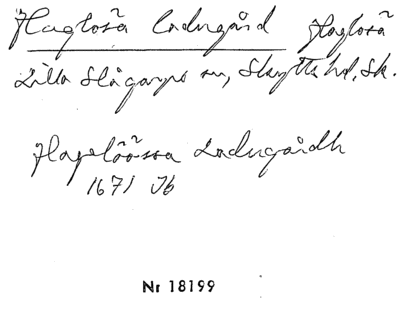 Haglösa Ladugård Haglösa
Lilla Slågarps sn, Skytts hd, Sk.
Hageløøssa Ladugårdh
1671 Jb
Nr 18199